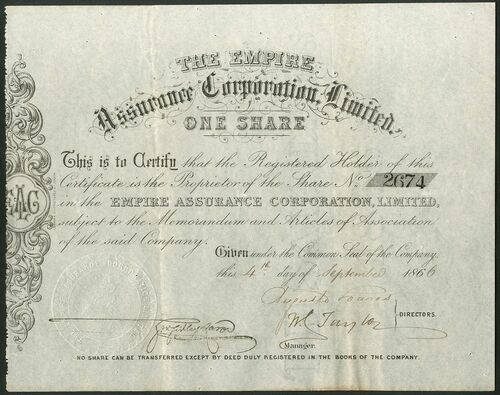 THE EMPIRE
Assurance Corporation, Limited,
ONE SHARE
This is to Certify that the Registered Holder of this
Certificate is the Proprietor of the Share No. 2674
in the EMPIRE ASSURANCE CORPORATION, LIMITED,
subject to the Memorandum and Articles of Association
of the said Company.
Given under the Common Seal of the Company,
this 4th day of September 1866
EAC
W. Taylor
DIRECTORS.
Manager.
NO SHARE CAN BE TRANSFERRED EXCEPT BY DEED DULY REGISTERED IN THE BOOKS OF THE COMPANY.